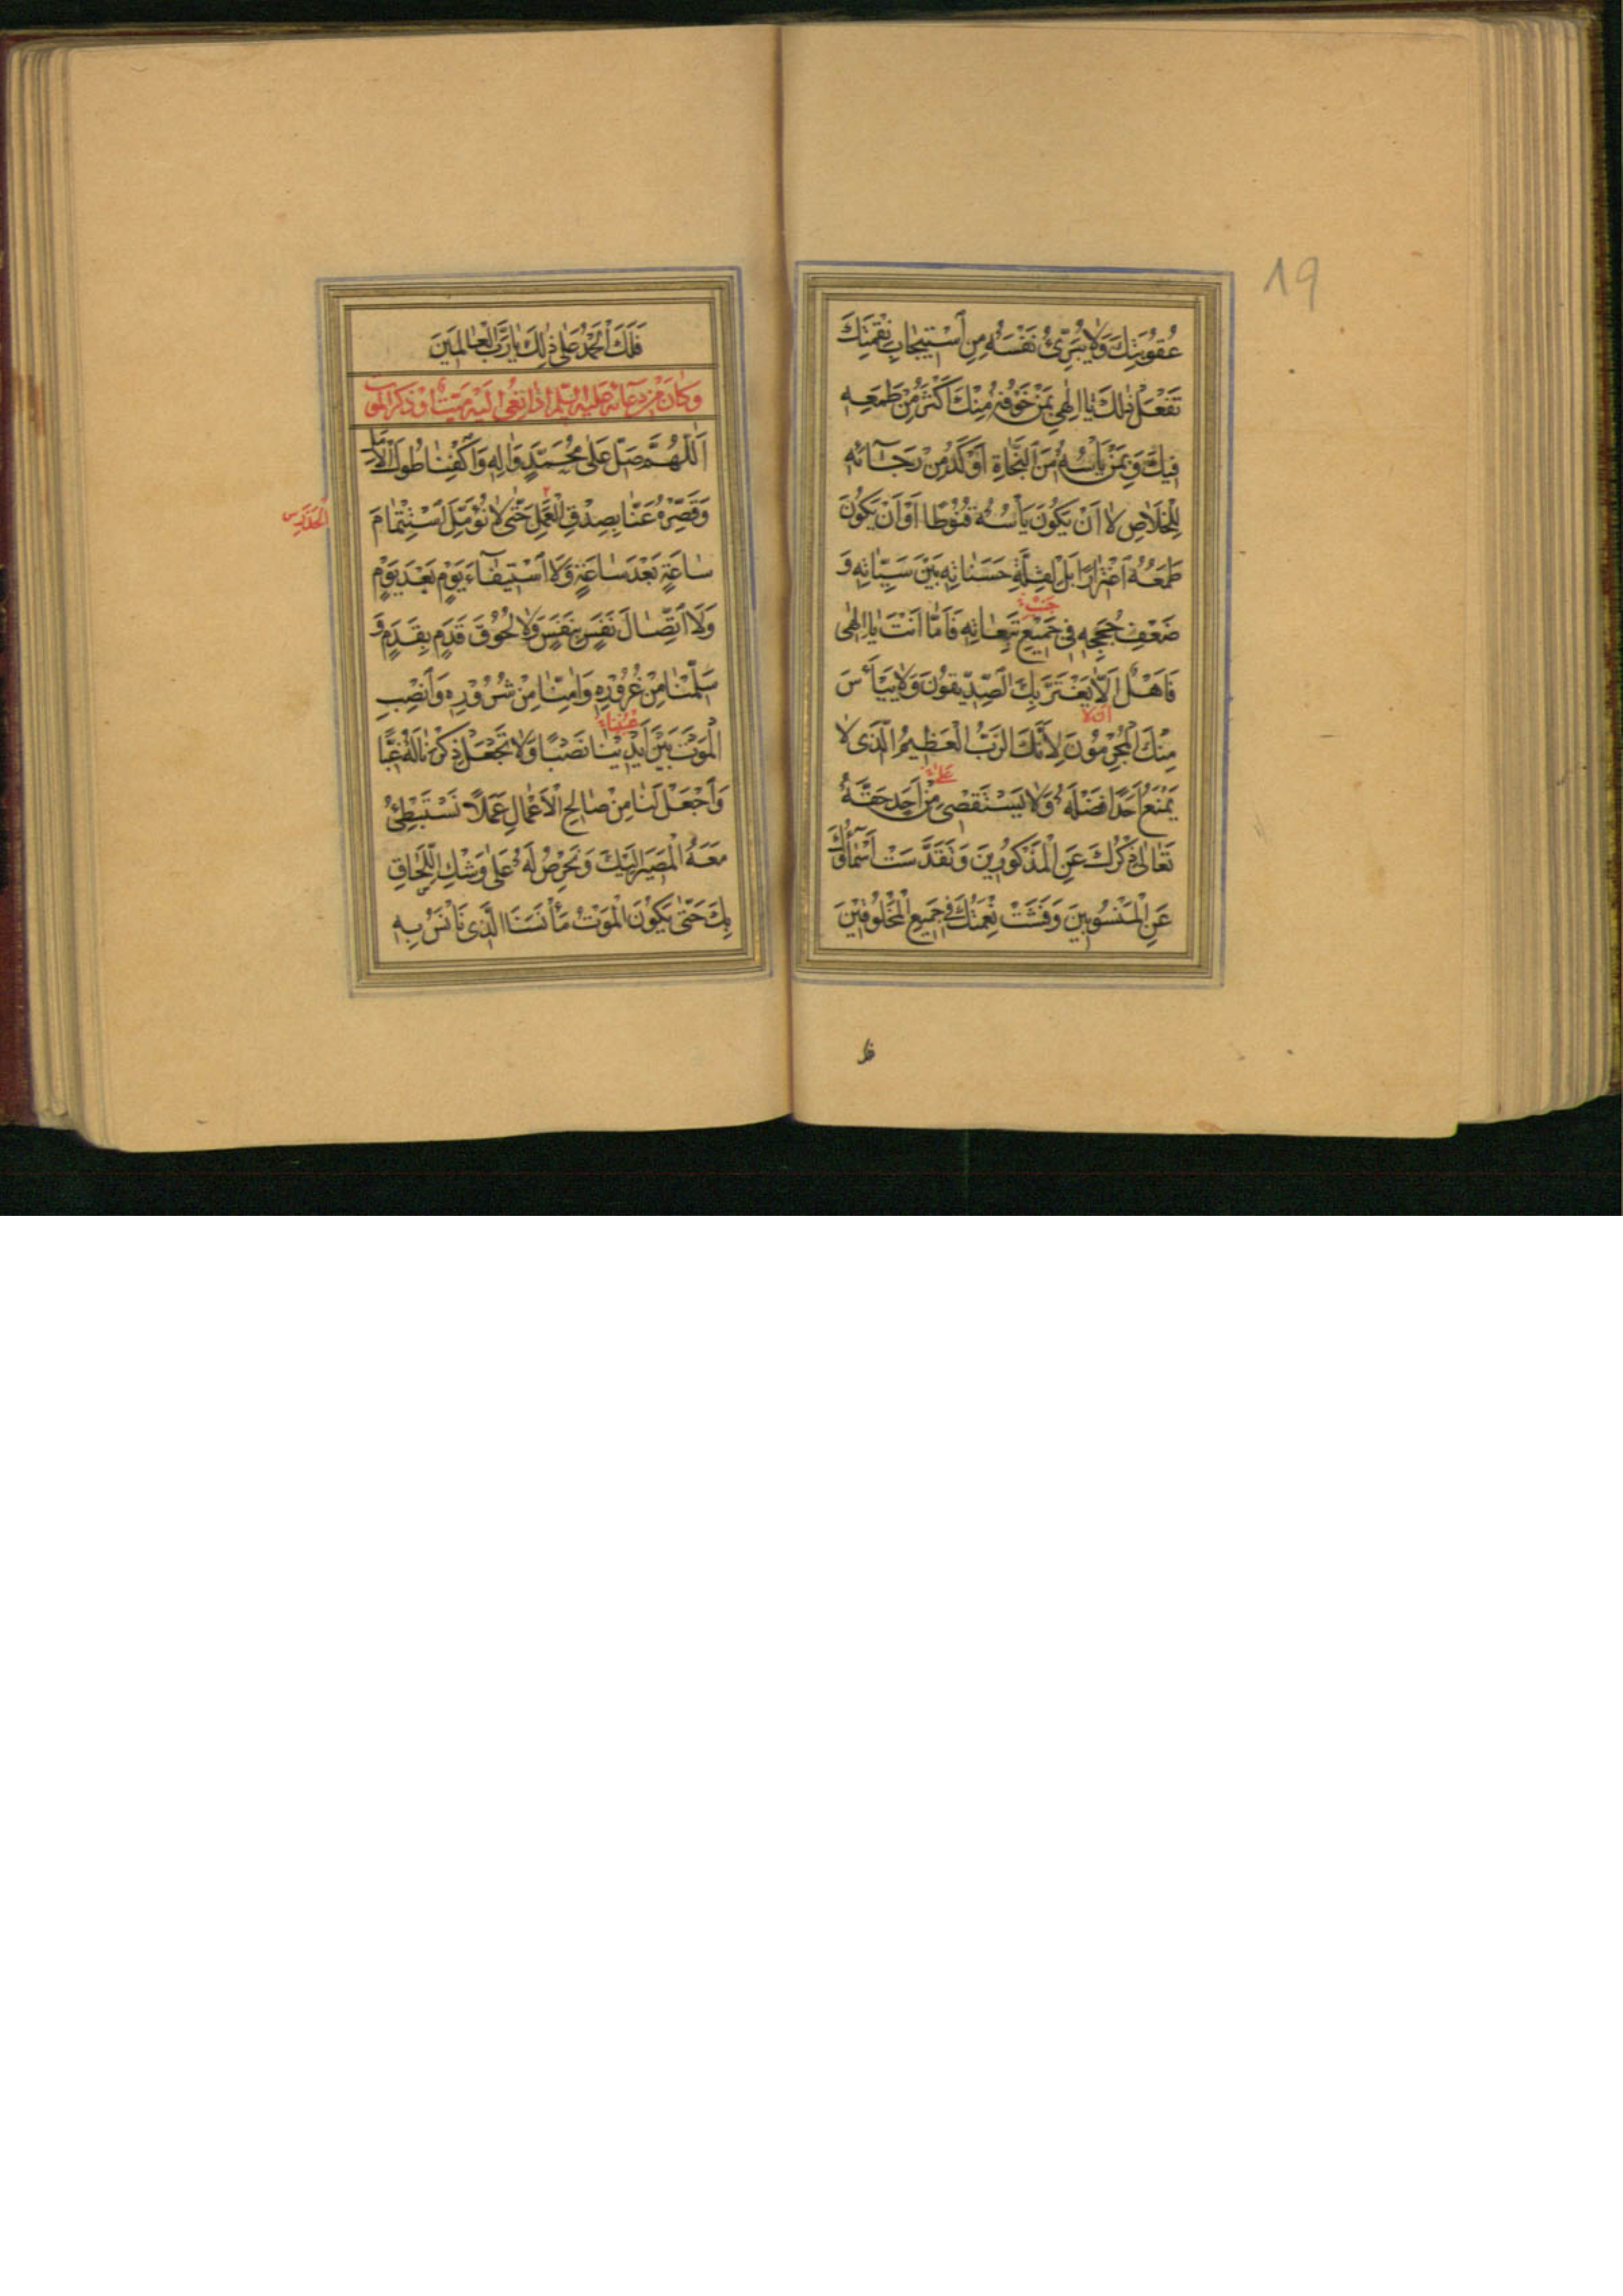 عُقُوبَتِكَ وَلَا يُبَرِّئُ نَفْسَهُ مِنِ اسْتِيجَابِ نِقْمَتِكَ
تَفْعَلُ ذٰلِكَ يَا اِلٰهِي بِمَنْ خَوْفُهُ مِنْكَ اَكْثَرُ مِنْ طَمَعِهِ
فِيكَ وَبِمَنْ يَأْسُهُ مِنَ النَّجَاةِ اَوْكَدُ مِنْ رَجَآئِهِ
لِلْخَلَاصِ لَا اَنْ يَكُونَ يَأْسُهُ قُنُوطًا اَوْ اَنْ يَكُونَ
طَمَعُهُ اغْتِرَارًا بَلْ لِقِلَّةِ حَسَنَاتِهِ بَيْنَ سَيِّئَاتِهِ وَ
ضَعْفِ حُجَجِهِ فِي جَمِيْعِ تَبِعَاتِهِ فَاَمَّا اَنْتَ يَا اِلٰهِى
فَاَهْلٌ اَلَّا يَغْتَرَّ بِكَ الصِّدِّيقُونَ وَلَا يَيْأَسَ
ان لا
مِنْكَ الْمُجْرِمُوْنَ لِاَنَّكَ الرَّبُّ الْعَظِيمُ الَّذِى لَا
يَمْنَعُ اَحَدًا فَضْلَهُ وَلَا يَسْتَقْصِى مِنْ اَحَدٍ حَقَّهُ
تَعَالٰى ذِكْرُكَ عَنِ الْمَذْكُورِينَ وَتَقَدَّسَتْ اَسْمَآؤُكَ
عَنِ الْمَنْسُوبِينَ وَفَشَتْ نِعْمَتُكَ فِي جَمِيعِ الْمَخْلُوقِيْنَ
19
فَلَكَ الْحَمْدُ عَلٰى ذٰلِكَ يَا رَبَّ الْعَالَمِينَ
وَكَانَ مِنْ دُعَائِهِ عَلَيْهِ السَّلَم اِذَا نُعِيَ اِلَيْهِ مَيِّتٌ اَوْ ذَكَرَ الْمَوْتَ
اَللّٰهُمَّ صَلِّ عَلٰى مُحَمَّدٍ وَاٰلِهِ وَاكْفِنَا طُولَ الْاَمَلِ
وَقَصِّرْهُ عَنَّا بِصِدْقِ الْعَمَلِ حَتّٰى لَا نُؤَمِّلَ اسْتِتْمَامَ
سَاعَةٍ بَعْدَ سَاعَةٍ وَلَا اسْتِيفَآءَ يَوْمٍ بَعْدَ يَوْمٍ
وَلَا اتِّصَالَ نَفَسٍ بِنَفَسٍ وَلَا لُحُوْقَ قَدَمٍ بِقَدَمٍ وَ
سَلِّمْنَا مِنْ غُرُوْرِهِ وَاٰمِنَّا مِنْ شُرُوْرِهِ وَانْصِبِ
الْمَوْتَ بَيْنَ اَيْدِيْنَا نَصْبًا وَلَا تَجْعَلْ ذِكْرَنَا لَهُ غِبًّا
وَاجْعَلْ لَنَا مِنْ صَالِحِ الْاَعْمَالِ عَمَلًا نَسْتَبْطِئُ
مَعَهُ الْمَصِيرَ اِلَيْكَ وَنَحْرِصُ لَهُ عَلٰى وَشْكِ اللِّحَاقِ
بِكَ حَتّٰى يَكُوْنَ الْمَوْتُ مَأْنَسَنَا الَّذِى نَأْنَسُ بِهِ